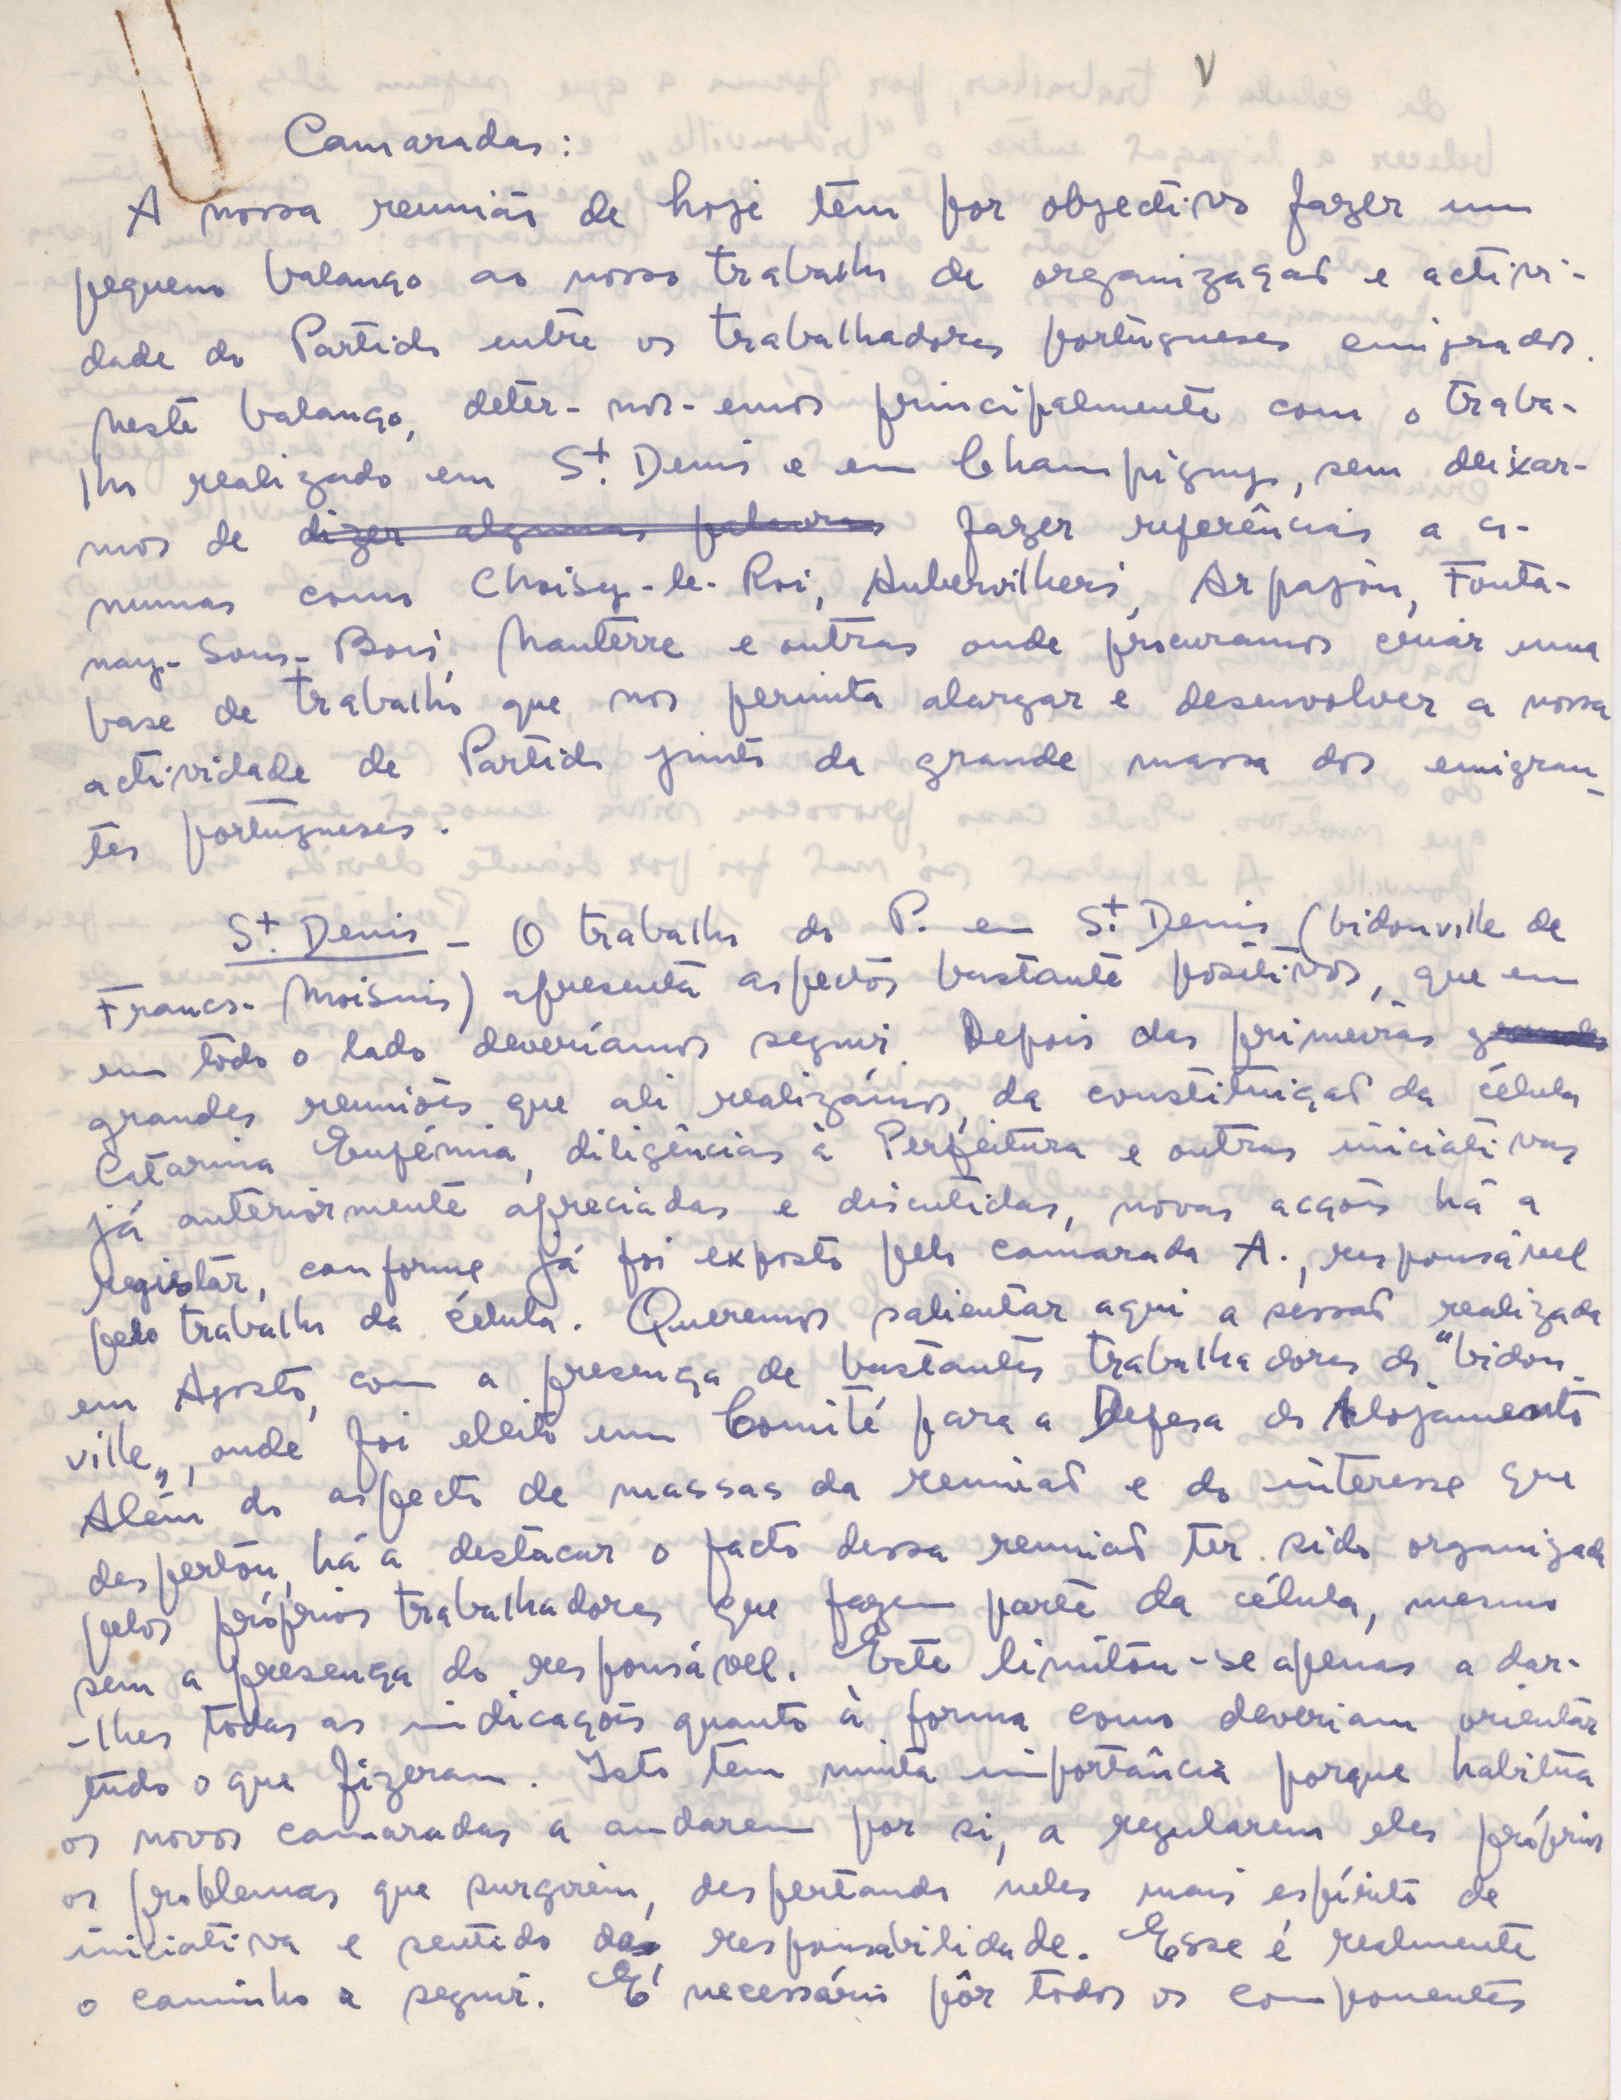 V
Camaradas:
A nossa reunião de hoje tem por objectivo fazer um
pequeno balanço ao nosso trabalho de organização e activi-
dade do Partido entre os trabalhadores portugueses emigrados.
Neste balanço, deter-nos-emos principalmente com o traba-
lho realizado em St. Denis e em Champigny, sem deixar-
mos de dizer algumas palavras fazer referências a co-
munas como Choisy-le-Roi, Aubervilliers, Arpajon, Fonta-
nay-Sous-Bois, Nanterre e outras onde procuramos criar uma
base de trabalho que nos permita alargar e desenvolver a nossa
actividade de Partido junto da grande massa dos emigran-
tes portugueses.
St. Denis - O trabalho do P. em St. Denis (bidonville de
Francs-Moisins) apresenta aspectos bastante positivos, que em
em todo o lado deveríamos seguir. Depois das primeiras grandes
grandes reuniões que ali realizámos, da constituição da célula
Catarina Eufémia, diligências à Perfeitura e outras iniciativas
já anteriormente apreciadas e discutidas, novas acções há a
registar, conforme já foi exposto pelo camarada A., responsável
pelo trabalho da célula. Queremos salientar aqui a sessão realizada
em Agosto, com a presença de bastantes trabalhadores do "bidon-
ville", onde foi eleito um Comité para a Defesa do Alojamento
Além do aspecto de massas da reunião e do interesse que
despertou, há a destacar o facto dessa reunião ter sido organizada
pelos próprios trabalhadores que fazem parte da célula, mesmo
sem a presença do responsável. Este limitou-se apenas a dar-
-lhes todas as indicações quanto à forma como deveriam orientar
tudo o que fizeram. Isto tem muita importância porque habitua
os novos camaradas a andarem por si, a regularem eles próprios
os problemas que surgirem, despertando neles mais espírito de
iniciativa e sentido da responsabilidade. Esse é realmente
o caminho a seguir. É necessário pôr todos os componentes